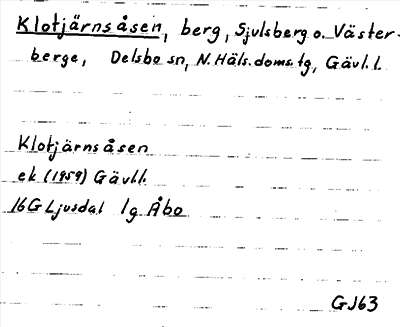 Klotjärnsåsen, berg, Sjulsberg o. Väster-
berge, Delsbo sn, N. Häls. doms. tg, Gävl. l.
Klotjärnsåsen
ek (1959) Gävl l.
16G Ljusdal lg Åbo
GJ63